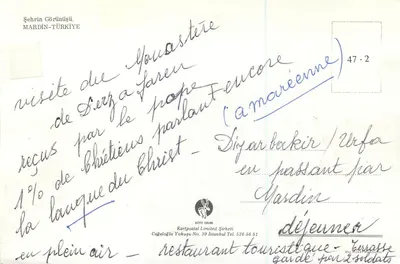 Şehrin Görünüşü.
MARDİN-TÜRKİYE
47 - 2
visite du Monastère
de Derza faren
reçus par le pope
1% de Chrétiens parlant encore
la langue du Christ -
(amaréenne)
Diyarbakir / Urfa
en passant par
Mardin
KESKİN COLOR
Kartpostal Limited Şirketi
Cağaloğlu Yokuşu No. 30 İstanbul Tel.
déjeuner
en plein air - restaurant touristique - terrasse
gardé par 2 soldats